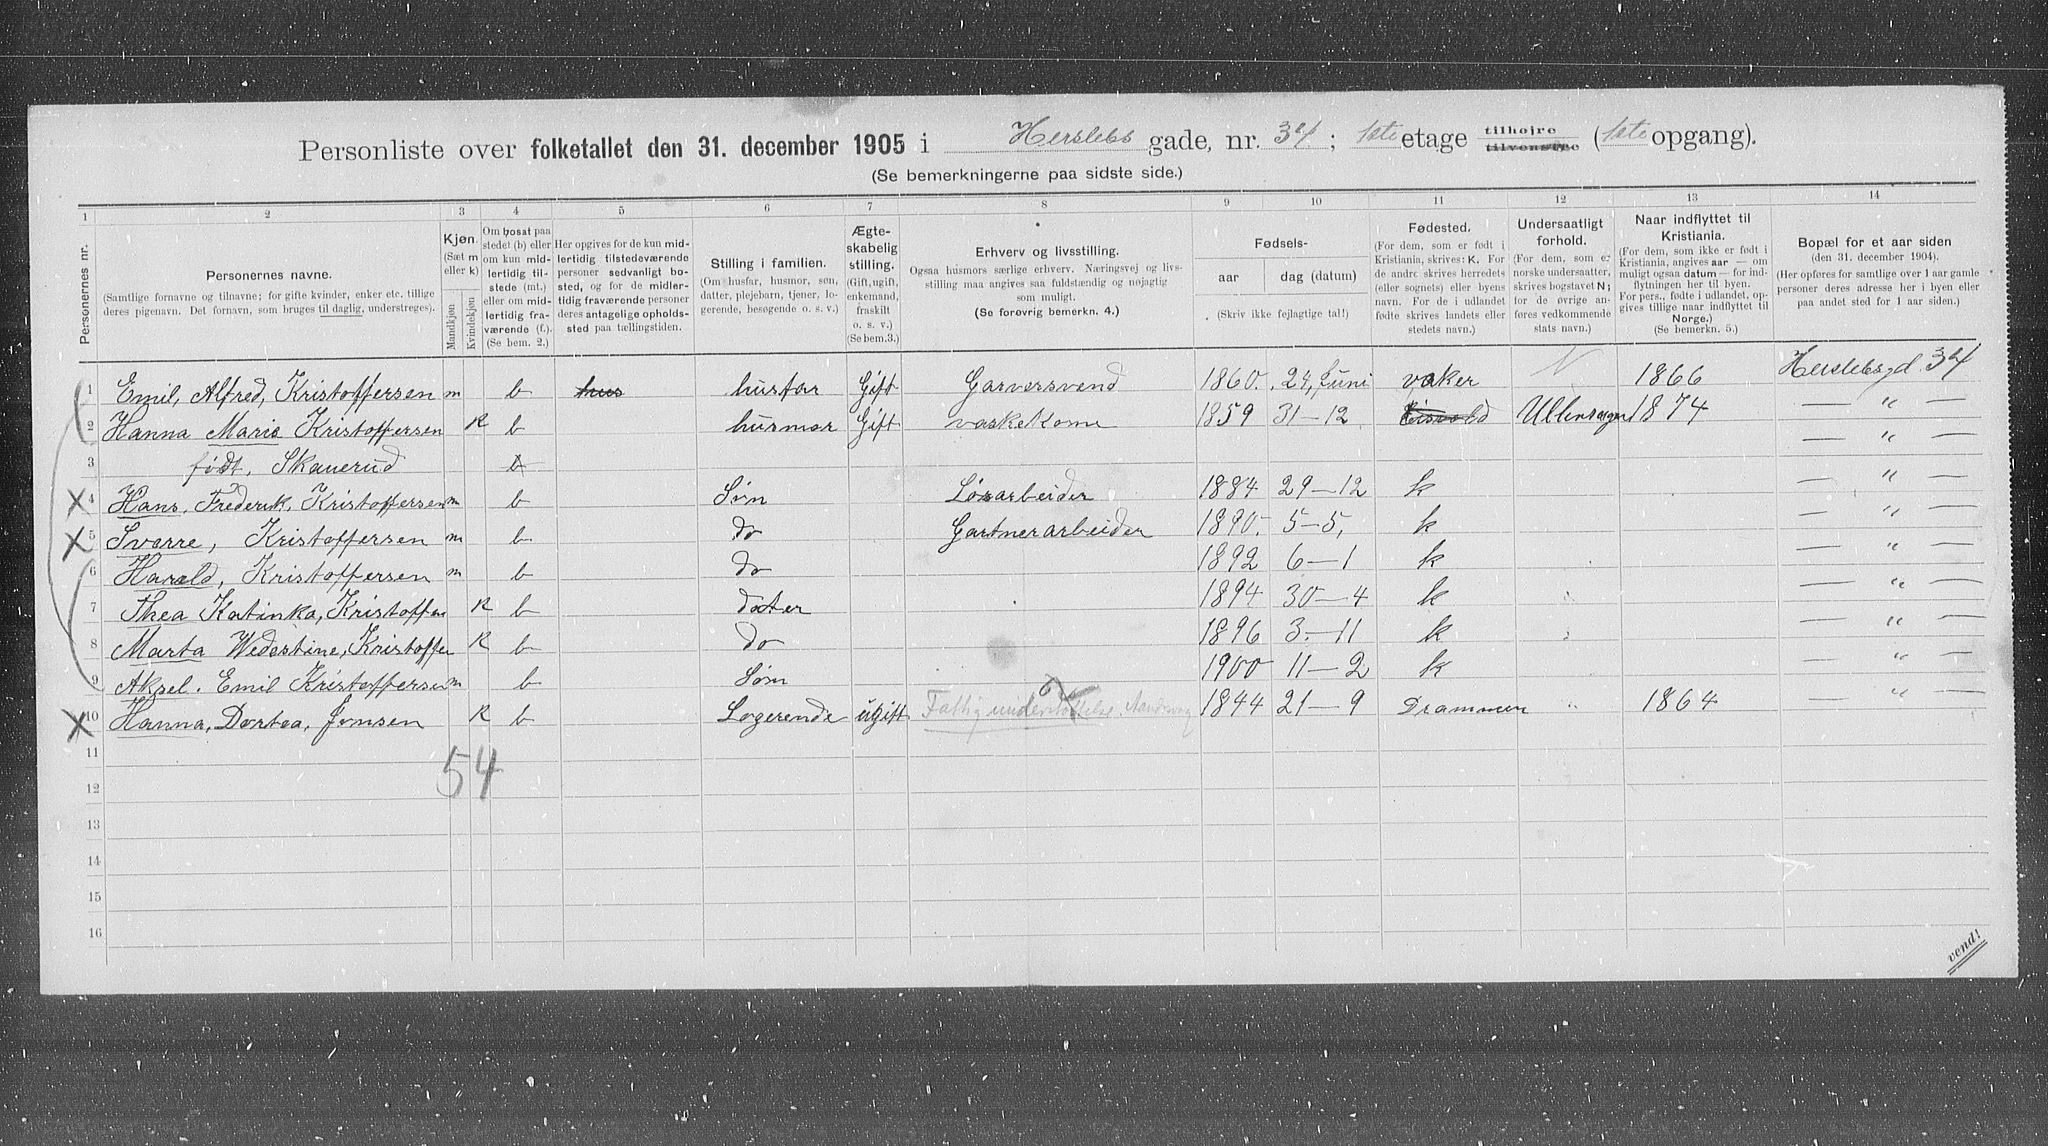 Personliste over folketallet den 31. december 1905 i Herslebs gade, nr. 34; 1ste etage tilhøjre tilvenstre (1ste opgang).
(Se bemerkningerne paa sidste side.)
1 2 3 4 5 6 7 8 9 10 11 12 13 14
Personernes nr.
Personernes navne.
(Samtlige fornavne og tilnavne; for gifte kvinder, enker etc. tillige deres pigenavn. Det fornavn, som bruges til daglig, understreges).
Kjøn. (Sæt m eller k)
Mandkjøn Kvindekjøn
Om bosat paa stedet (b) eller om kun midlertidig tilstede (mt.) eller om midlertidig fraværende (f.). (Se bem. 2.)
Her opgives for de kun midlertidig tilstedeværende personer sedvanligt bosted, og for de midlertidig fraværende personer deres antagelige opholdssted paa tællingstiden.
Stilling i familien.
(Om husfar, husmor, søn, datter, plejebarn, tjener, logerende, besøgende o. s. v.)
Ægteskabelig stilling.
(Gift, ugift, enkemand, fraskilt o. s. v.) (Se bem. 3.)
Erhverv og livsstilling.
Ogsaa husmors særlige erhverv. Næringsvej og livsstilling maa angives saa fuldstændig og nøjagtig som muligt.
(Se forøvrig bemerkn. 4.)
Fødsels-
aar dag (datum)
(Skriv ikke fejlagtige tal!)
Fødested.
(For dem, som er født i Kristiania, skrives: K. For de andre skrives herredets (eller sognets) eller byens navn. For de i udlandet fødte skrives landets eller stedets navn.)
Undersaatligt forhold.
(For dem, som er norske undersaatter, skrives bogstavet N; for de øvrige anføres vedkommende stats navn.)
Naar indflyttet til Kristiania.
(For dem, som ikke er født i Kristiania, angives aar — om muligt ogsaa datum — for indflytningen her til byen. For pers., fødte i udlandet, opgives tillige naar indflyttet til Norge.) (Se bemerkn. 5.)
Bopæl for et aar siden
(den 31. december 1904).
(Her opføres for samtlige over 1 aar gamle personer deres adresse her i byen eller paa andet sted for 1 aar siden.)
1 Emil, Alfred, Kristoffersen m b hus husfar Gift Garversvend 1860. 24, Juni vaker N 1866 Herslebsgd. 34
2 Hanna Maria Kristoffersen K b husmor Gift vaskekone 1859 31-12 Eisvold Ullensager 1874 — " —
3 født, Skauerud b — " —
4 Hans, Frederik, Kristoffersen m b Søn Løsarbeider 1884 29-12 k — " —
5 Sverre, Kristoffersen m b do Gartnerarbeider 1890. 5-5, k — " —
6 Harald, Kristoffersen m b do 1892 6-1 k — " —
7 Thea Katinka, Kristoffer K b dater 1894 30-4 k — " —
8 Marta Wedastine, Kristoffer K b do 1896 3.-11 k — " —
9 Aksel. Emil Kristoffersen m b Søn 1900 11-2 k — " —
10 Hanna, Dortea, Jonsen K b Logerende ugift Fattigunderstøttelse 1844 21-9 Drammen " 1864 — " —
54
11
12
13
14
15
16
vend!